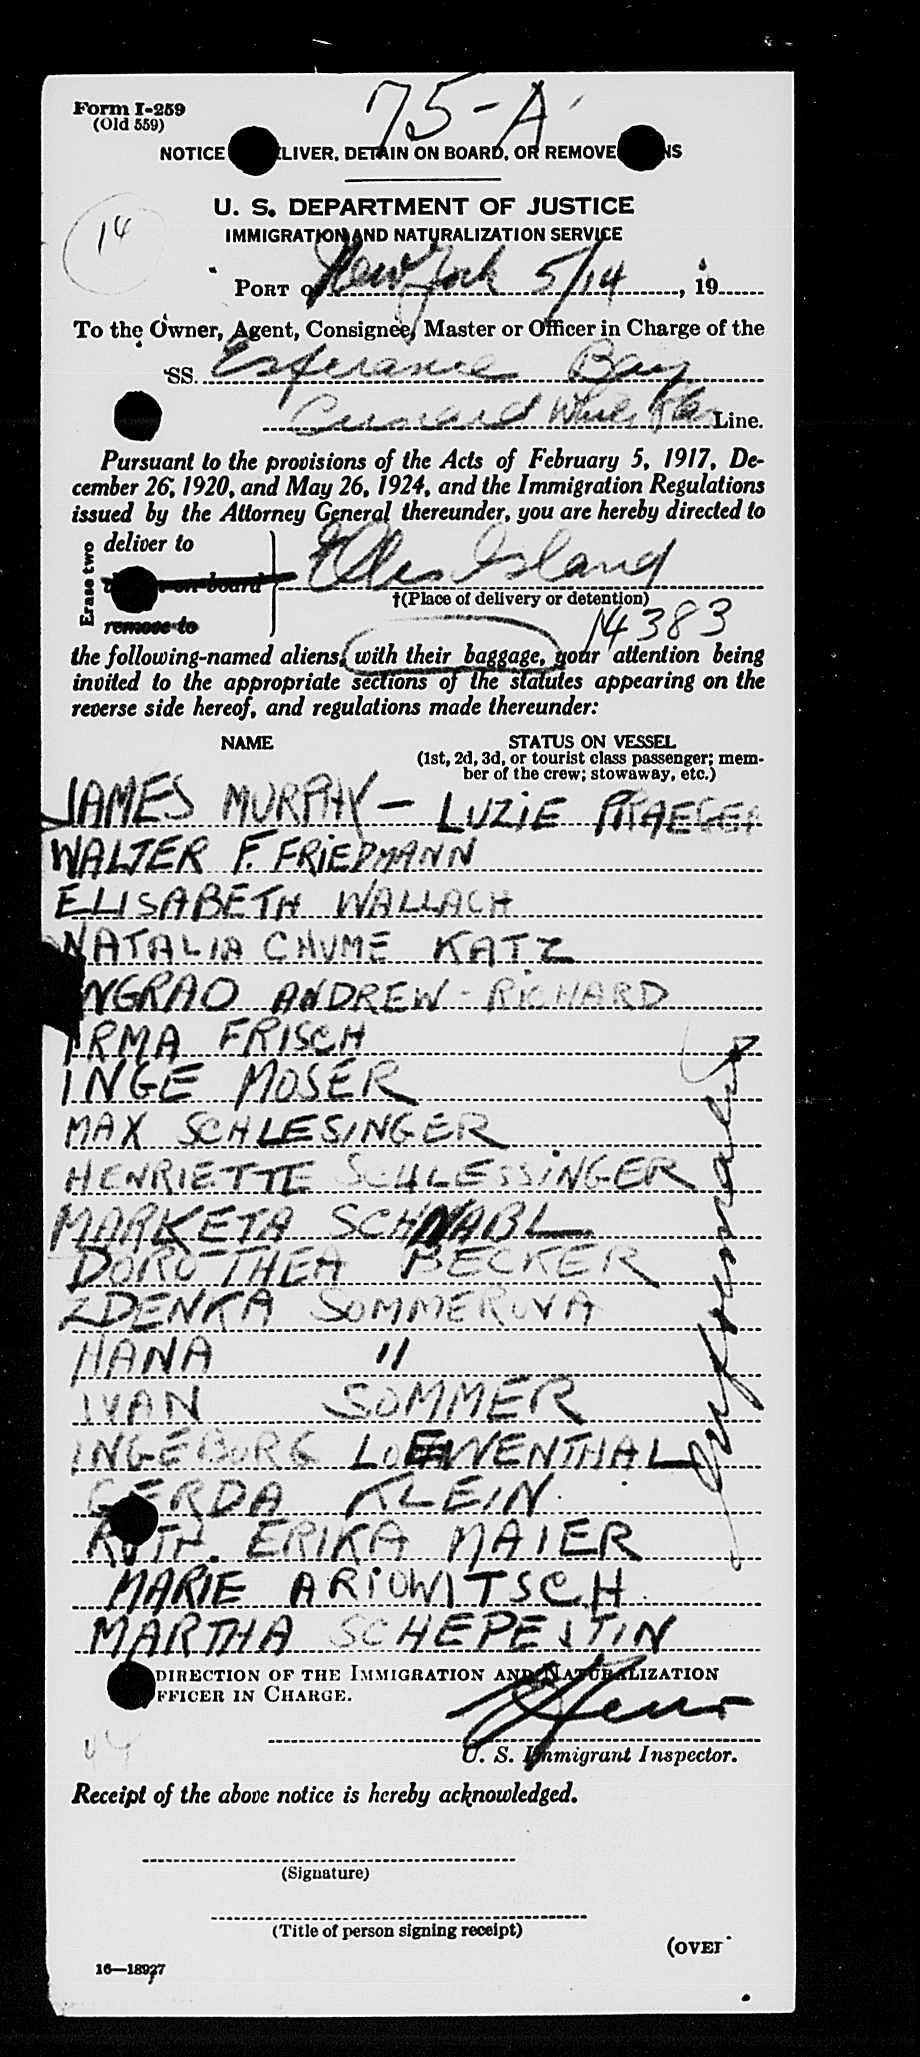 Form I-259
(Old 559)
75-A
NOTICE LIVER, DETAIN ON BOARD, OR REMOVE NS
U. S. DEPARTMENT OF JUSTICE
14
IMMIGRATION AND NATURALIZATION SERVICE
PORT OF New York 5/14, 19
To the Owner, Agent, Consignee, Master or Officer in Charge of the
SS. Esperance Bay
Cunard White Star Line.
Pursuant to the provisions of the Acts of February 5, 1917, De-
cember 26, 1920, and May 26, 1924, and the Immigration Regulations
issued by the Attorney General thereunder, you are hereby directed to
Erase two
deliver to
on board
Ellis Island
†(Place of delivery or detention)
remove to
14383
the following-named aliens, with their baggage, your attention being
invited to the appropriate sections of the statutes appearing on the
reverse side hereof, and regulations made thereunder:
NAME STATUS ON VESSEL
(1st, 2d, 3d, or tourist class passenger; mem-
ber of the crew; stowaway, etc.)
JAMES MURPHY - LUZIE PRAEGER
WALTER F. FRIEDMANN
ELISABETH WALLACH
NATALIA CHUME KATZ
NGRAO ANDREW - RICHARD
IRMA FRISCH
INGE MOSER
MAX SCHLESINGER
HENRIETTE SCHLESSINGER
MARKETA SCHNABL
DOROTHEA BECKER
ZDENKA SOMMEROVA
HANA "
IVAN SOMMER
INGEBURG LOEWENTHAL
GERDA KLEIN
RUTH. ERIKA MAIER
MARIE ARIOWITSCH
MARTHA SCHEPESTIN
DIRECTION OF THE IMMIGRATION AND NATURALIZATION
FFICER IN CHARGE.
U. S. Immigrant Inspector.
Receipt of the above notice is hereby acknowledged.
(Signature)
(Title of person signing receipt)
(OVER
16—18927